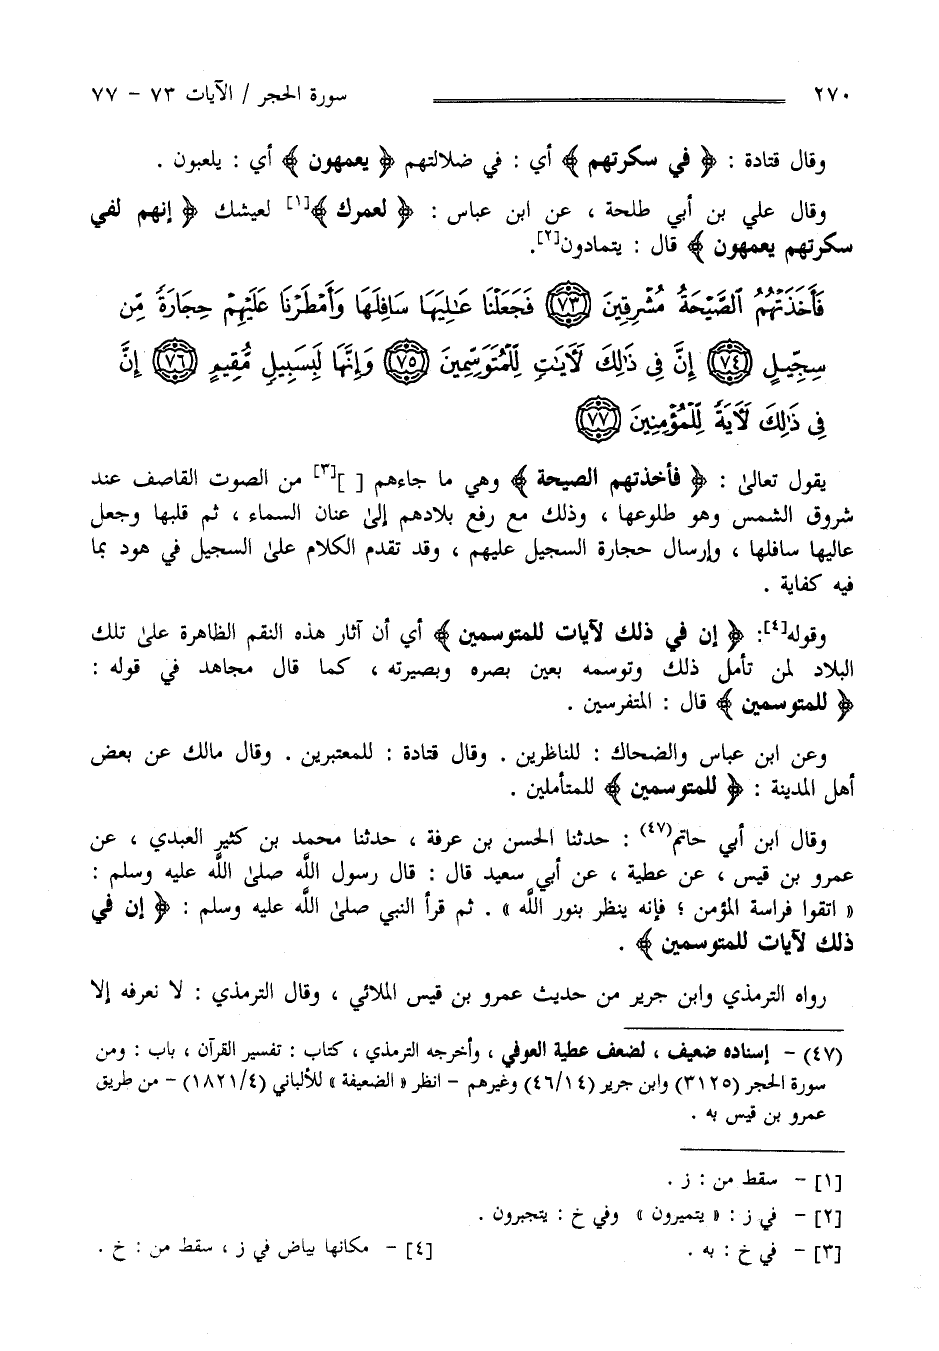 ٢٧٠ سورة الحجر / الآيات ٧٣ - ٧٧
وقال قتادة : ﴿ في سكرتهم ﴾ أي : في ضلالتهم ﴿ يعمهون ﴾ أي : يلعبون .
وقال علي بن أبي طلحة ، عن ابن عباس : ﴿ لعمرك ﴾[١] لعيشك ﴿ إنهم لفي
سكرتهم يعمهون ﴾ قال : يتمادون[٢].
فَأَخَذَتْهُمُ ٱلصَّيْحَةُ مُشْرِقِينَ ٧٣ فَجَعَلْنَا عَـٰلِيَهَا سَافِلَهَا وَأَمْطَرْنَا عَلَيْهِمْ حِجَارَةً مِّن
سِجِّيلٍ ٧٤ إِنَّ فِى ذَٰلِكَ لَآيَاتٍ لِّلْمُتَوَسِّمِينَ ٧٥ وَإِنَّهَا لَبِسَبِيلٍ مُّقِيمٍ ٧٦ إِنَّ
فِى ذَٰلِكَ لَآيَةً لِّلْمُؤْمِنِينَ ٧٧
يقول تعالىٰ : ﴿ فأخذتهم الصيحة ﴾ وهي ما جاءهم [ ][٣] من الصوت القاصف عند
شروق الشمس وهو طلوعها ، وذلك مع رفع بلادهم إلىٰ عنان السماء ، ثم قلبها وجعل
عاليها سافلها ، وإرسال حجارة السجيل عليهم ، وقد تقدم الكلام علىٰ السجيل في هود بما
فيه كفاية .
وقوله[٤]: ﴿ إن في ذلك لآيات للمتوسمين ﴾ أي أن آثار هذه النقم الظاهرة علىٰ تلك
البلاد لمن تأمل ذلك وتوسمه بعين بصره وبصيرته ، كما قال مجاهد في قوله :
﴿ للمتوسمين ﴾ قال : المتفرسين .
وعن ابن عباس والضحاك : للناظرين . وقال قتادة : للمعتبرين . وقال مالك عن بعض
أهل المدينة : ﴿ للمتوسمين ﴾ للمتأملين .
وقال ابن أبي حاتم(٤٧) : حدثنا الحسن بن عرفة ، حدثنا محمد بن كثير العبدي ، عن
عمرو بن قيس ، عن عطية ، عن أبي سعيد قال : قال رسول اللَّه صلىٰ اللَّه عليه وسلم :
« اتقوا فراسة المؤمن ؛ فإنه ينظر بنور اللَّه » . ثم قرأ النبي صلىٰ اللَّه عليه وسلم : ﴿ إن في
ذلك لآيات للمتوسمين ﴾ .
رواه الترمذي وابن جرير من حديث عمرو بن قيس الملائي ، وقال الترمذي : لا نعرفه إلا
(٤٧) - إسناده ضعيف ، لضعف عطية العوفي ، وأخرجه الترمذي ، كتاب : تفسير القرآن ، باب : ومن
سورة الحجر (٣١٢٥) وابن جرير (٤٦/١٤) وغيرهم - انظر « الضعيفة » للألباني (١٨٢١/٤) - من طريق
عمرو بن قيس به .
[١] - سقط من : ز .
[٢] - في ز : « يتميرون » وفي خ : يتجبرون .
[٣] - في خ : به . [٤] - مكانها بياض في ز ، سقط من : خ .